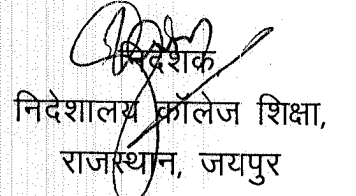 निदेशक
निदेशालय कॉलेज शिक्षा,
राजस्थान, जयपुर